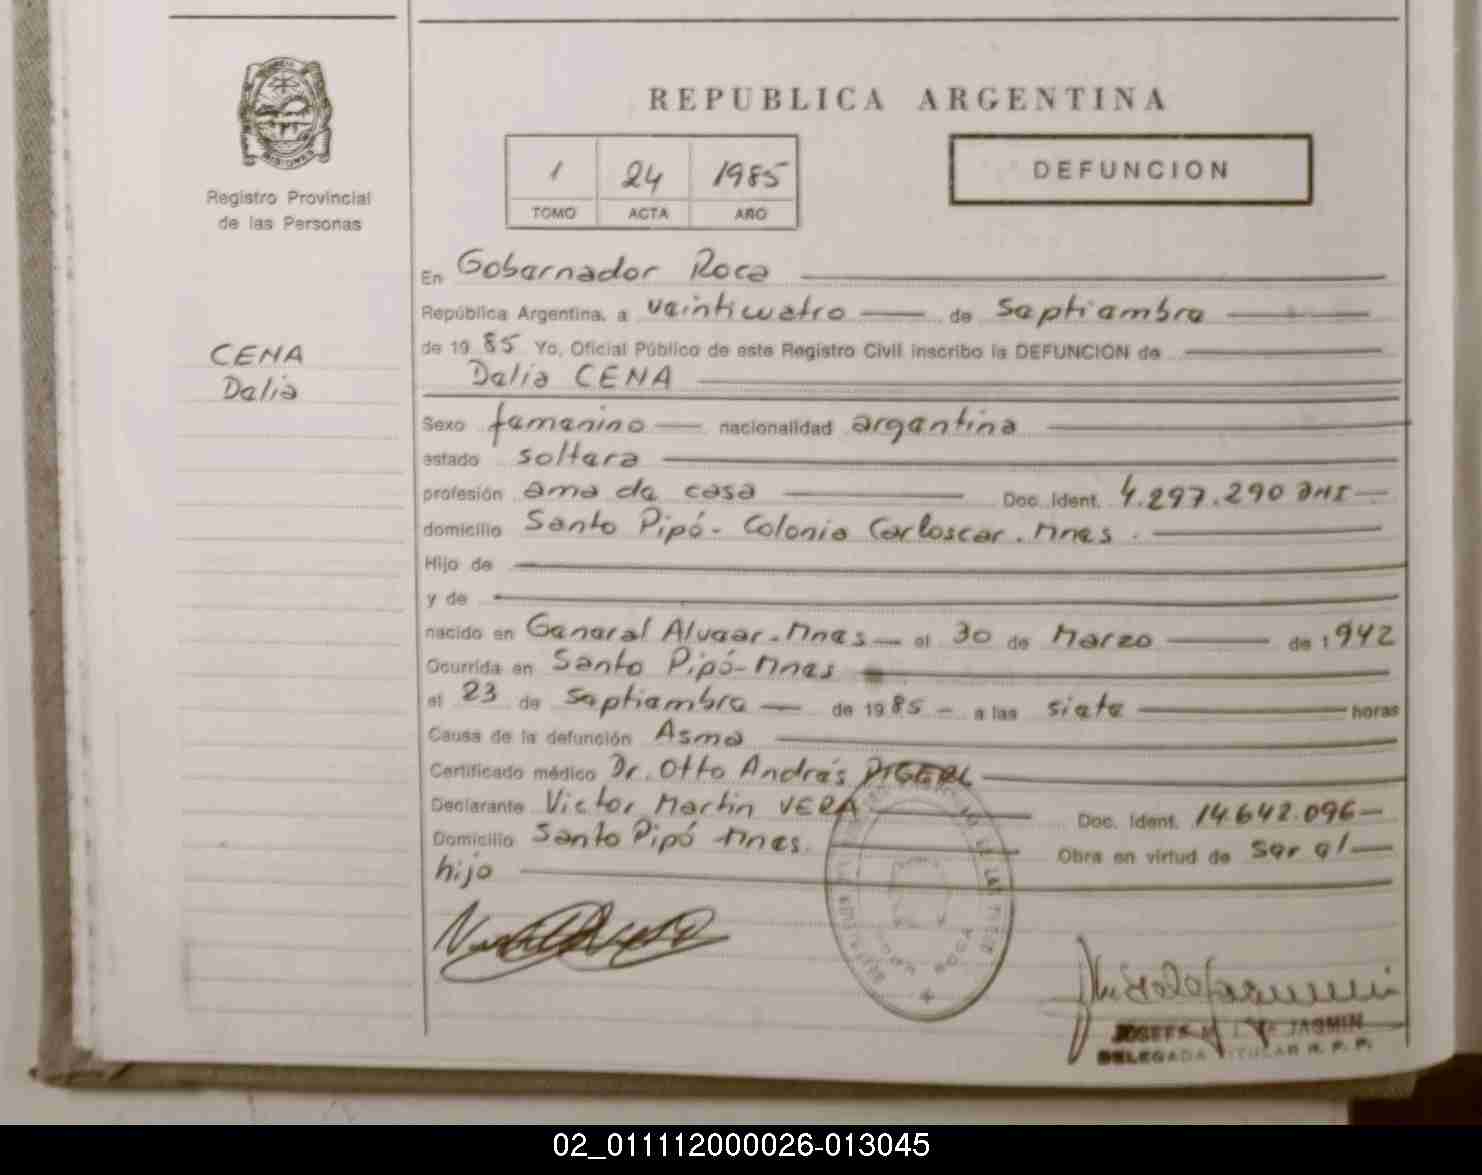 REPUBLICA ARGENTINA
MISIONES
Registro Provincial
de las Personas
1 24 1985
TOMO ACTA AÑO
DEFUNCION
CENA
Dalia
En Gobernador Roca
República Argentina, a veinticuatro de septiembre
de 19 85 Yo, Oficial Público de este Registro Civil inscribo la DEFUNCION de
Dalia CENA
Sexo femenino nacionalidad argentina
estado soltera
profesión ama de casa Doc. Ident. 4.297.290
domicilio Santo Pipó - Colonia Carloscar. Mnes.
Hijo de
y de
nacido en General Alvear - Mnes - el 30 de Marzo de 1942
Ocurrida en Santo Pipó - Mnes
el 23 de septiembre de 1985 - a las siete horas
Causa de la defunción Asma
Certificado médico Dr. Otto Andrés
Declarante Victor Martin VERA Doc. Ident. 14.642.096
Domicilio Santo Pipó - Mnes. Obra en virtud de ser el
hijo
ROCA
JASMIN
DELEGADA TITULAR R. P. P.
02_011112000026-013045